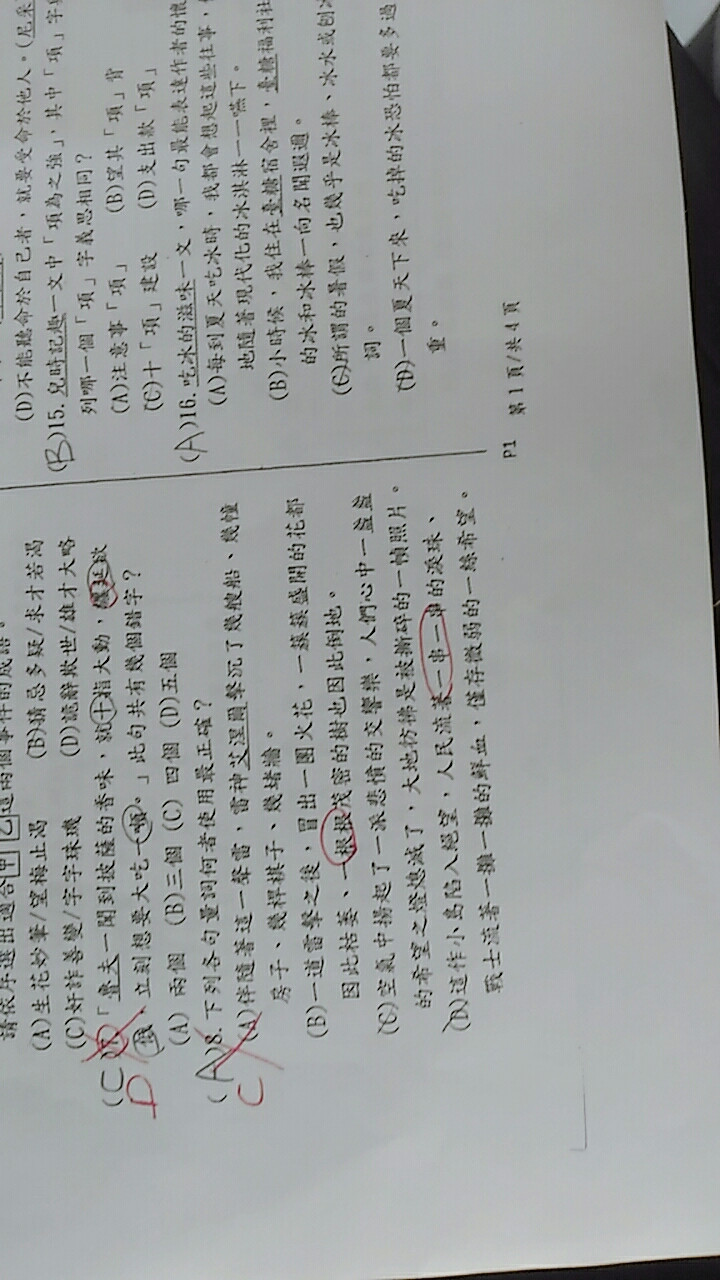 請依序選出適合甲乙這兩個事件的成語。
(A)生花妙筆/望梅止渴 (B)猜忌多疑/求才若渴
(C)奸詐善變/字字珠璣 (D)詭辭欺世/雄才大略
(C D)7.「魯夫一聞到披薩的香味,就十指大動,涎欲
,立刻想要大吃一頓。」此句共有幾個錯字?
(A) 兩個 (B)三個 (C) 四個 (D)五個
(A C)8.下列各句量詞何者使用最正確?
(A)伴隨著這一聲雷,雷神艾涅爾擊沉了幾艘船、幾幢
房子、幾桿棋子、幾堵牆。
(B)一道雷擊之後,冒出一團火花,一簇簇盛開的花都
因此枯萎、一根根茂密的樹也因此倒地。
(C)空氣中揚起了一派悲憤的交響樂,人們心中一盞盞
的希望之燈熄滅了,大地彷彿是被撕碎的一幀照片。
(D)這作小島陷入絕望,人民流著一串一串的淚珠、
戰士流著一攤一攤的鮮血,僅存微弱的一絲希望。
(D)不能聽命於自己者,就要受命於他人。(尼采
(B)15.兒時記趣一文中「項為之強」,其中「項」字
列哪一個「項」字義思相同?
(A)注意事「項」 (B)望其「項」背
(C)十「項」建設 (D)支出款「項」
(A)16.吃冰的滋味一文,哪一句最能表達作者的懷
(A)每到夏天吃冰時,我都會想起這些往事,
地隨著現代化的冰淇淋一一嚥下。
(B)小時候,我住在臺糖宿舍裡,臺糖福利社
的冰和冰棒一向名聞遐邇。
(C)所謂的暑假,也幾乎是冰棒、冰水或刨冰
詞。
(D)一個夏天下來,吃掉的冰恐怕都要多過
重。
P1 第1頁/共4頁